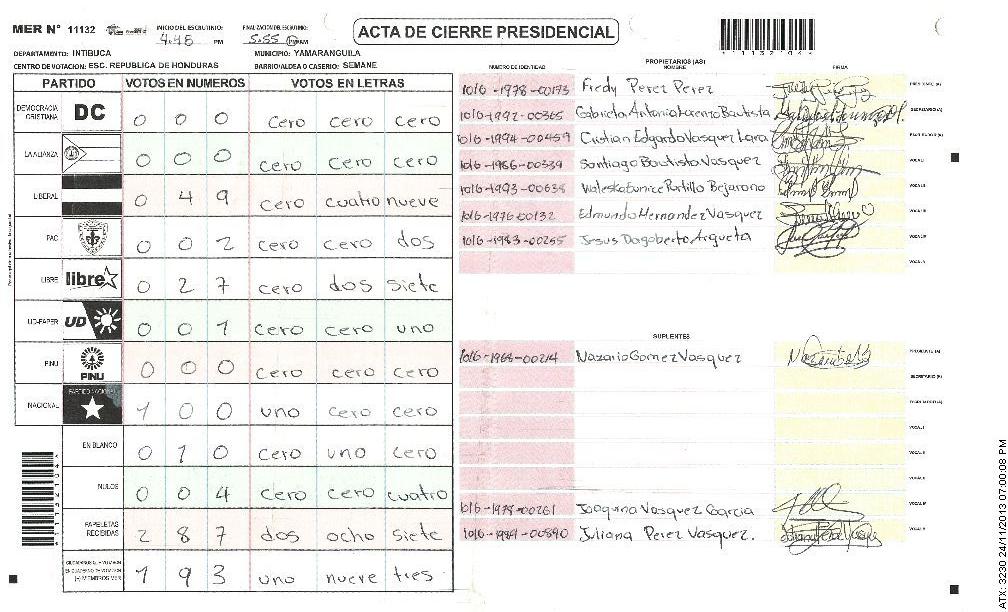 MER N° 11132
INICIO DEL ESCRUTINIO: 4:48 PM
FINALIZACION DEL ESCRUTINIO: 5:55 PM AM
ACTA DE CIERRE PRESIDENCIAL
DEPARTAMENTO: INTIBUCA
MUNICIPIO: YAMARANGUILA
CENTRO DE VOTACION: ESC. REPUBLICA DE HONDURAS
BARRIO/ALDEA O CASERIO: SEMANE
PARTIDO VOTOS EN NUMEROS VOTOS EN LETRAS
DEMOCRACIA CRISTIANA DC 0 0 0 cero cero cero
LA ALIANZA 0 0 0 cero cero cero
LIBERAL 0 4 9 cero cuatro nueve
PAC 0 0 2 cero cero dos
LIBRE libre 0 2 7 cero dos siete
UD-FAPER UD 0 0 1 cero cero uno
PINU PINU 0 0 0 cero cero cero
NACIONAL PARTIDO NACIONAL 1 0 0 uno cero cero
EN BLANCO 0 1 0 cero uno cero
NULOS 0 0 4 cero cero cuatro
PAPELETAS RECIBIDAS 2 8 7 dos ocho siete
1 9 3 uno nueve tres
PROPIETARIOS (AS)
NUMERO DE IDENTIDAD NOMBRE FIRMA
1016-1978-00173 Fredy Perez Perez PRESIDENTE (A)
1016-1992-00365 Gabriela Antonia Lorenzo Bautista SECRETARIO (A)
1016-1994-00459 Cristian Edgardo Vasquez Lara ESCRUTADOR (A)
1016-1986-00339 Santiago Bautista Vasquez VOCAL I
1016-1993-00638 Waleska Eunice Portillo Bejarano VOCAL II
1016-1976-00132 Edmundo Hernandez Vasquez VOCAL III
1016-1983-00255 Jesus Dagoberto Argueta VOCAL IV
VOCAL V
SUPLENTES
1016-1968-00214 Nazario Gomez Vasquez PRESIDENTE (A)
SECRETARIO (A)
ESCRUTADOR (A)
VOCAL I
VOCAL II
VOCAL III
1016-1978-00261 Joaquina Vasquez Garcia VOCAL IV
1016-1989-00590 Juliana Perez Vasquez. VOCAL V
ATX: 3230 24/11/2013 07:00:08 PM